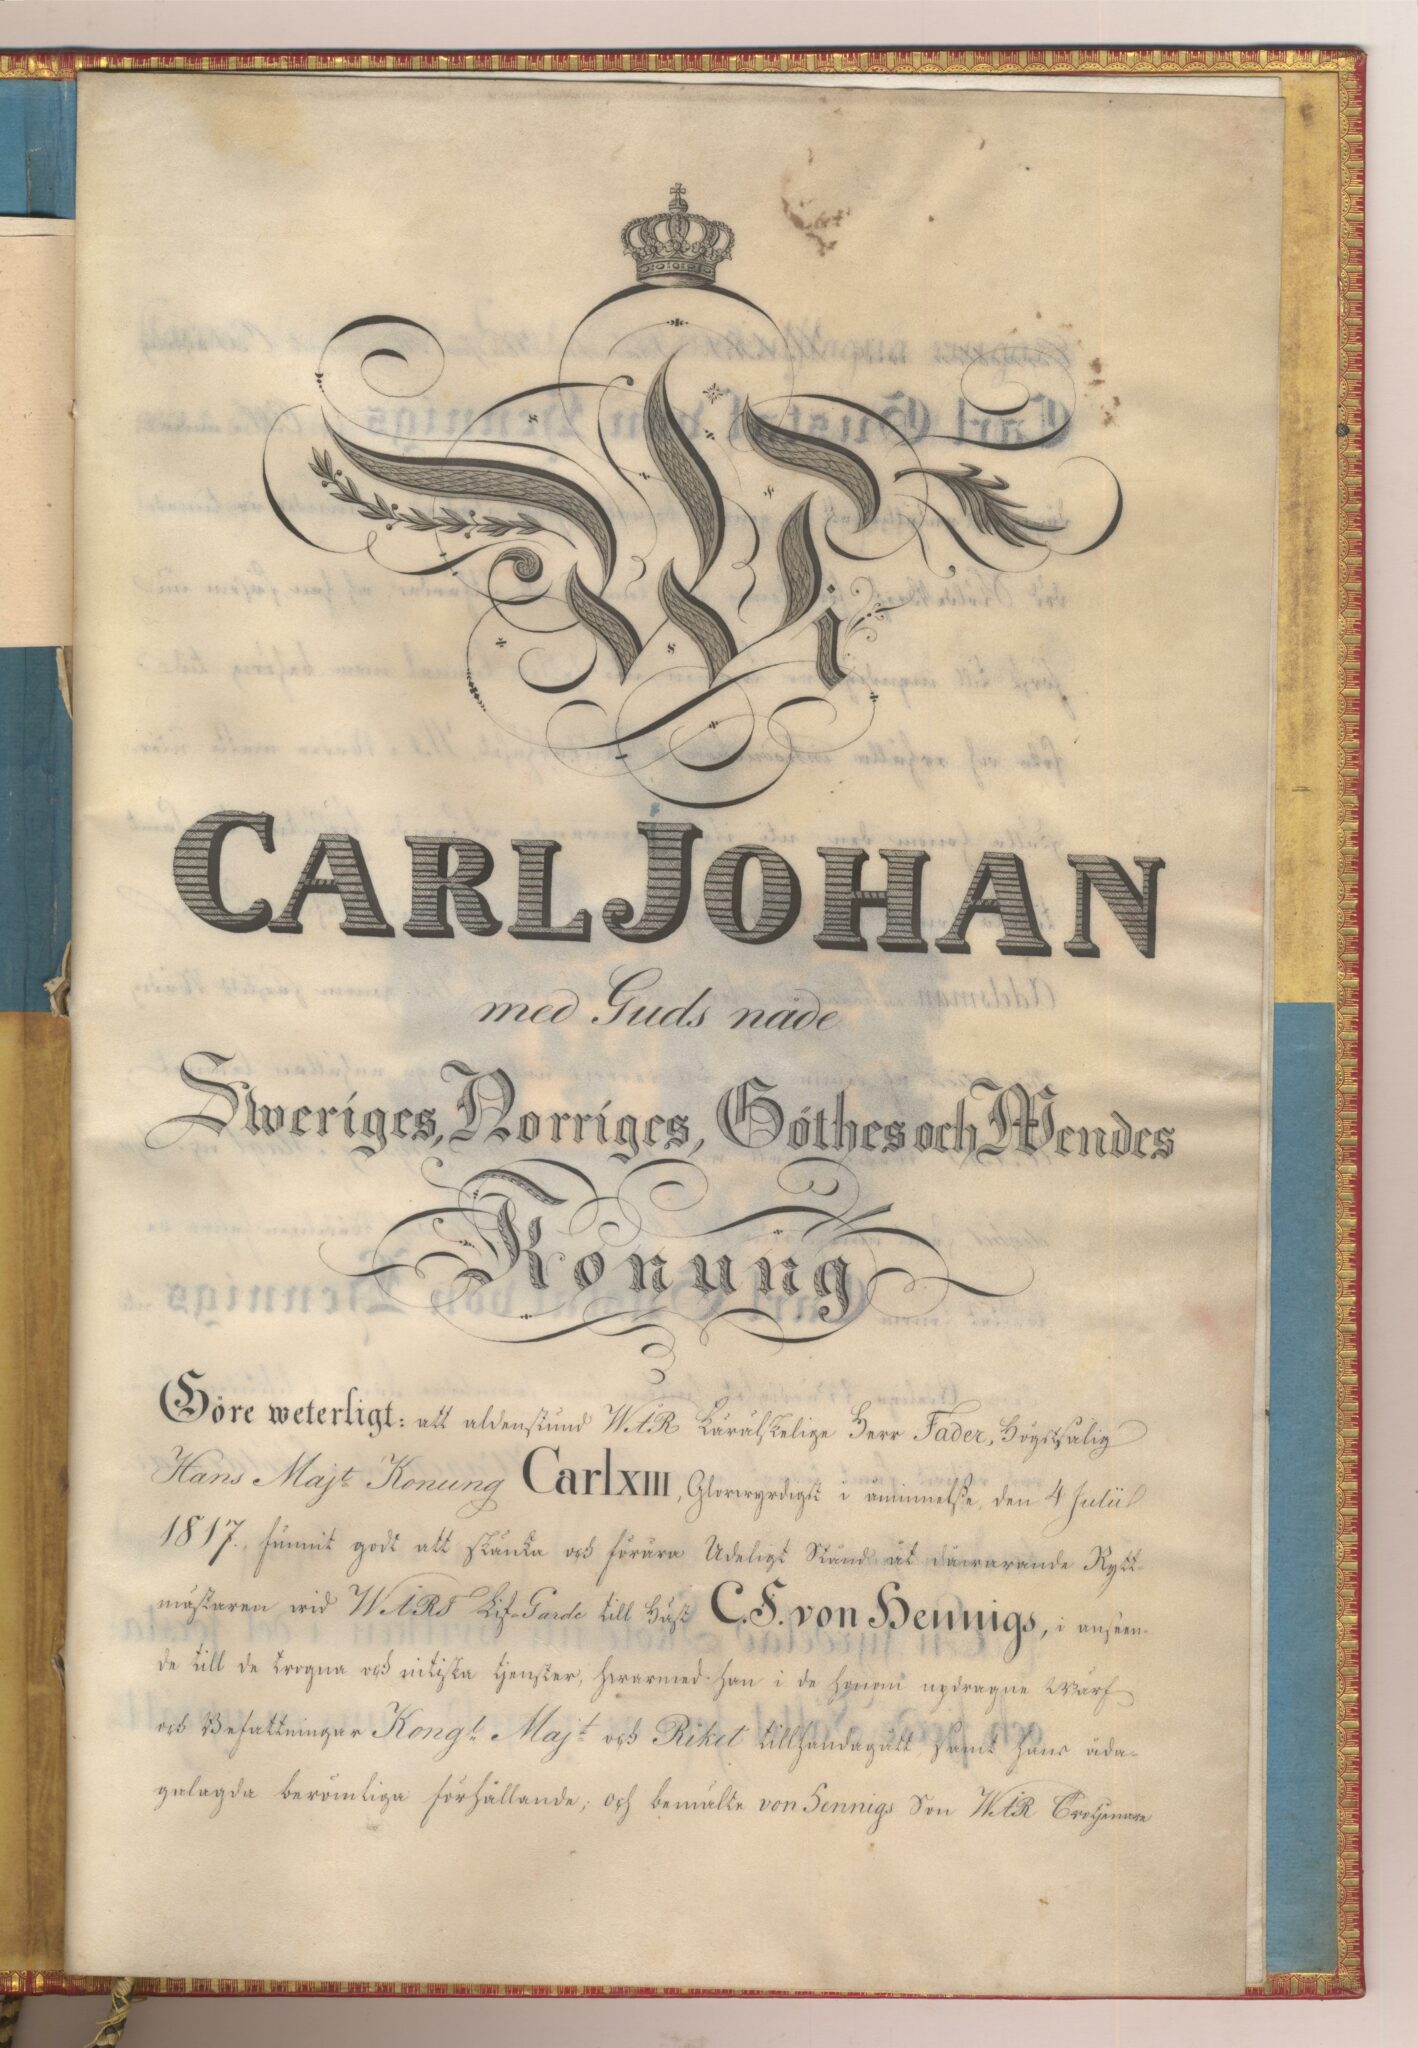 Wi
CARL JOHAN
med Guds nåde
Sweriges, Norriges, Göthes och Wendes
Konung
Göre weterligt: att aldenstund WÅR Käräl͟skelige Herr Fader, Högstsalig
Hans Majt Konung Carl XIII, Glorwyrdigst i åminnelse, den 4 Julii
1817, funnit godt att skänka och förära Adeligt Stånd åt dåwarande Rytt-
mästaren wid WÅRT Lif-Garde till Häst C. F. von Hennigs, i anseen-
de till de trogna och nitiska tjenster, hwarmed han i de honom updragne Wärf
och Befattningar Kongl. Majt och Riket tillhandagått, samt hans åda-
galagda berömliga förhållande; och bemälte von Hennigs Son WÅR Trotjenare